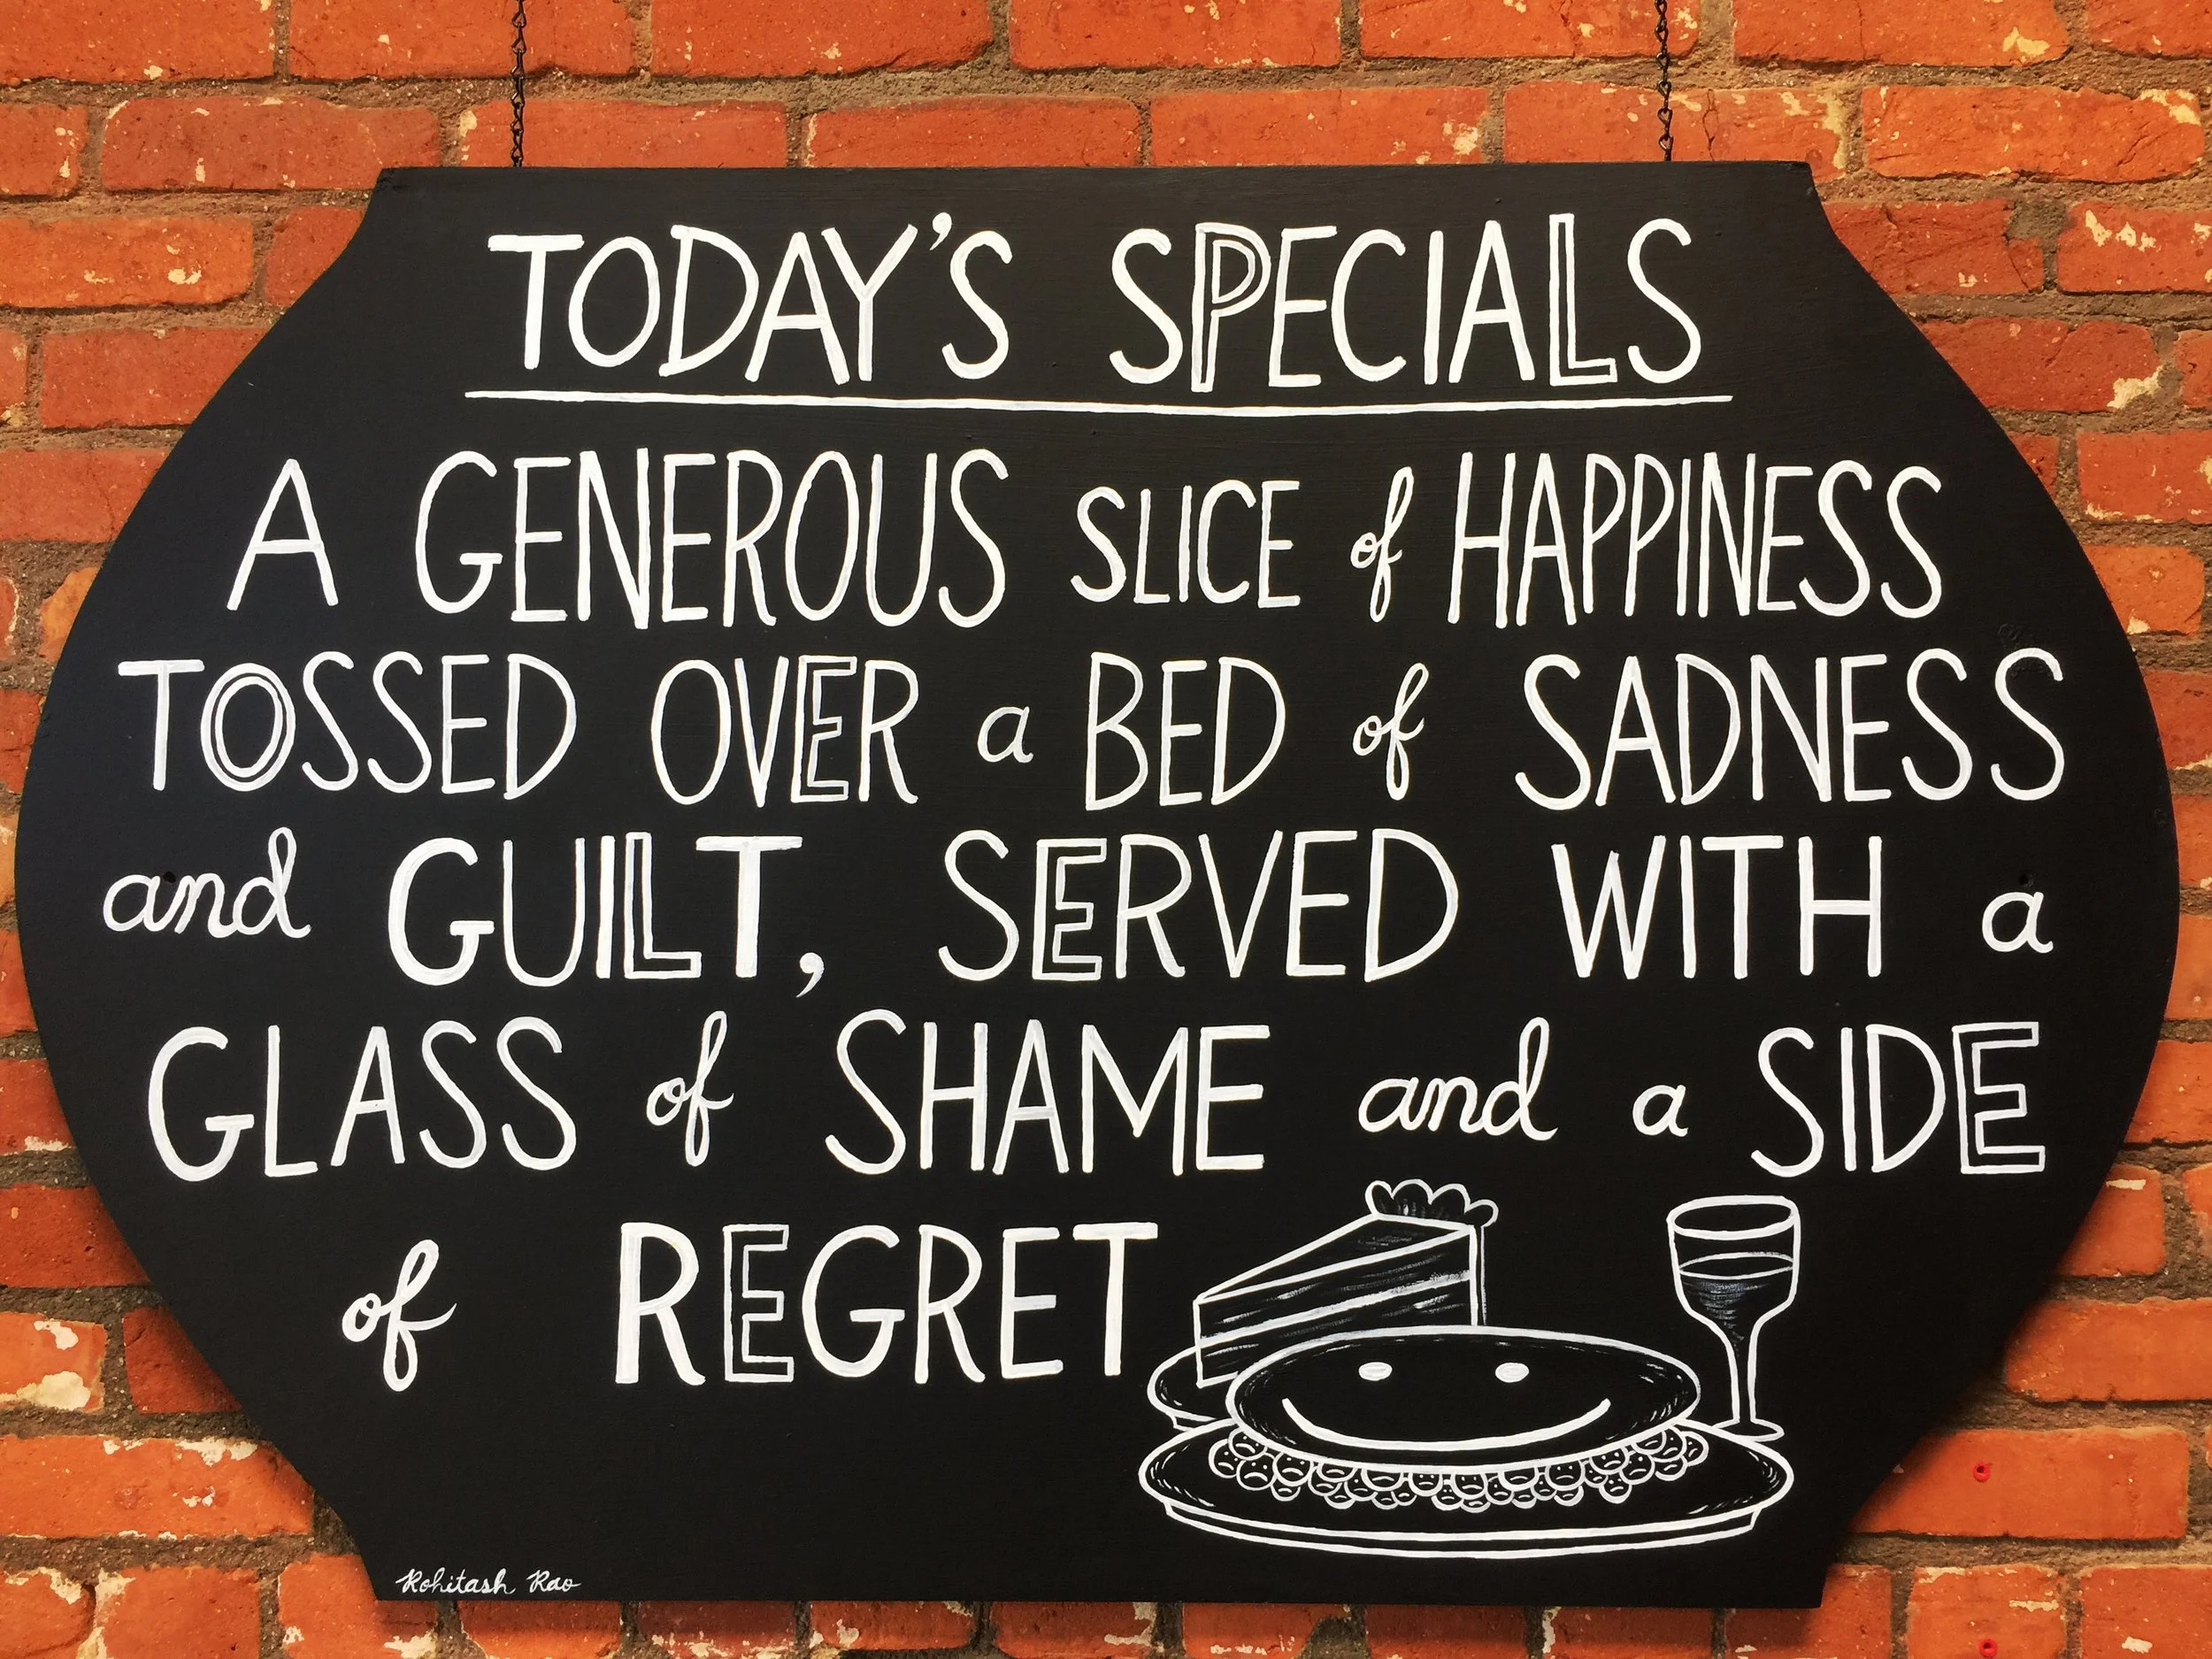 TODAY'S SPECIALS
A GENEROUS SLICE of HAPPINESS
TOSSED OVER a BED of SADNESS
and GUILT, SERVED WITH a
GLASS of SHAME and a SIDE
of REGRET
Rohitash Rao